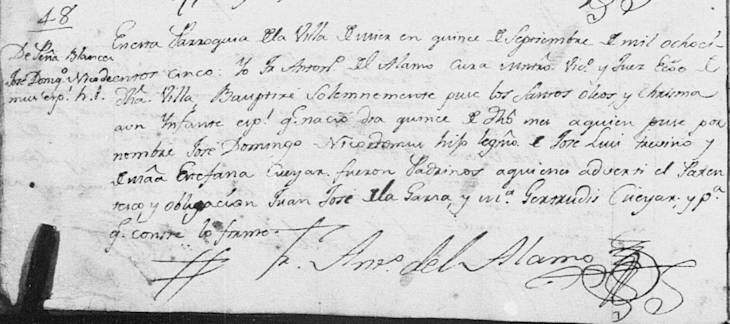 48
De Peña Blanca
José Domº. Nicode
mus espl. h. l.
En esta Parroquia de la Villa de Mier en quince de Septiembre de mil ochoci-
entos cinco: Yo Fr. Antonº. del Alamo Cura Mntrô. Vicº. y Juez Ecôo de
dha. Villa Bauptizé Solemnemente puse los Santos oleos, y Chrisma
aun Infante espl. q. nació dia quince de dho. mes aquien puse por
nombre José Domingo Nicodemus hijo legmô. de José Luis treviño y
de Maâ Estefana Cueyar. fueron Padrinos aquienes adverti el Paren-
tesco y obligacion Juan José de la Garza, y Mª. Gertrudis Cueyar. y pª.
q. conste lo firme.
Fr. Antº. del Alamo